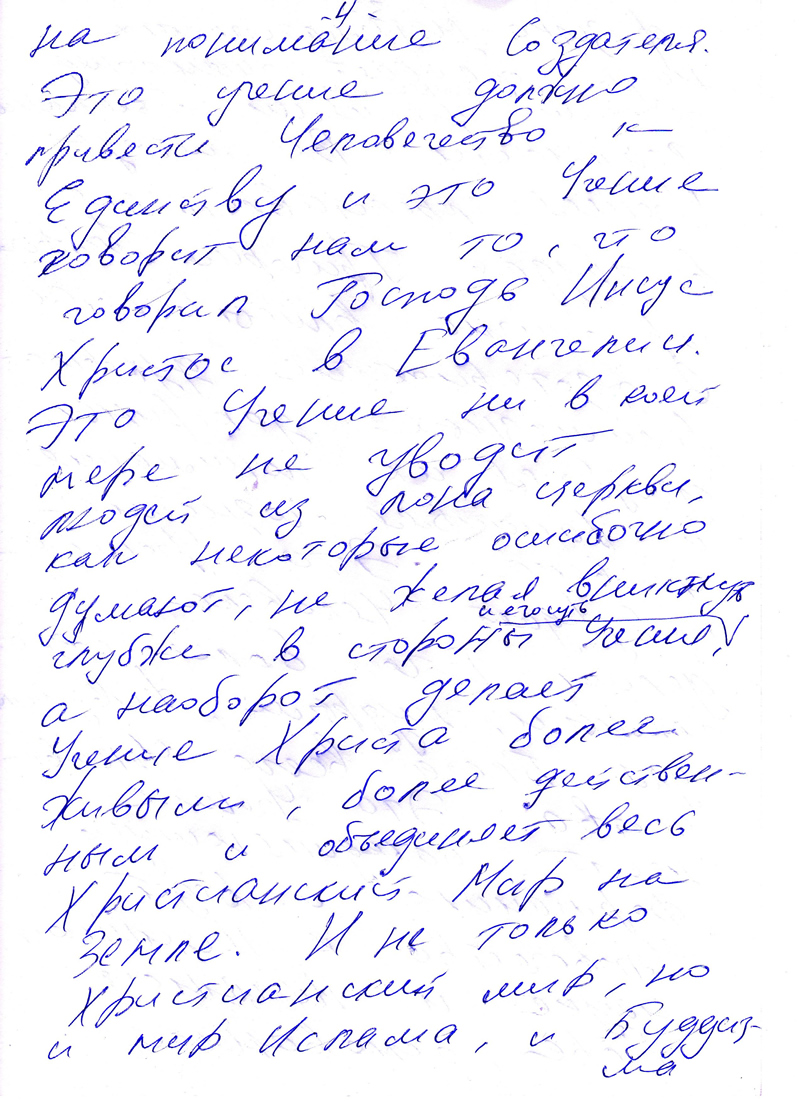 - 4 -
на понимание Создателя.
Это учение должно
привести Человечество к
Единству и это Учение
говорит нам то, что
говорил Господь Иисус
Христос в Евангелии.
Это Учение ни в коей
мере не уводит
людей из лона церкви,
как некоторые ошибочно
думают, не желая вникнуть
и его суть
глубже в стороны Учения,
а наоборот делает
Учение Христа более
живым, более действен-
ным и объединяет весь
Христианский Мир на
Земле. И не только
Христианский мир, но
и мир Ислама, и Буддиз-
ма